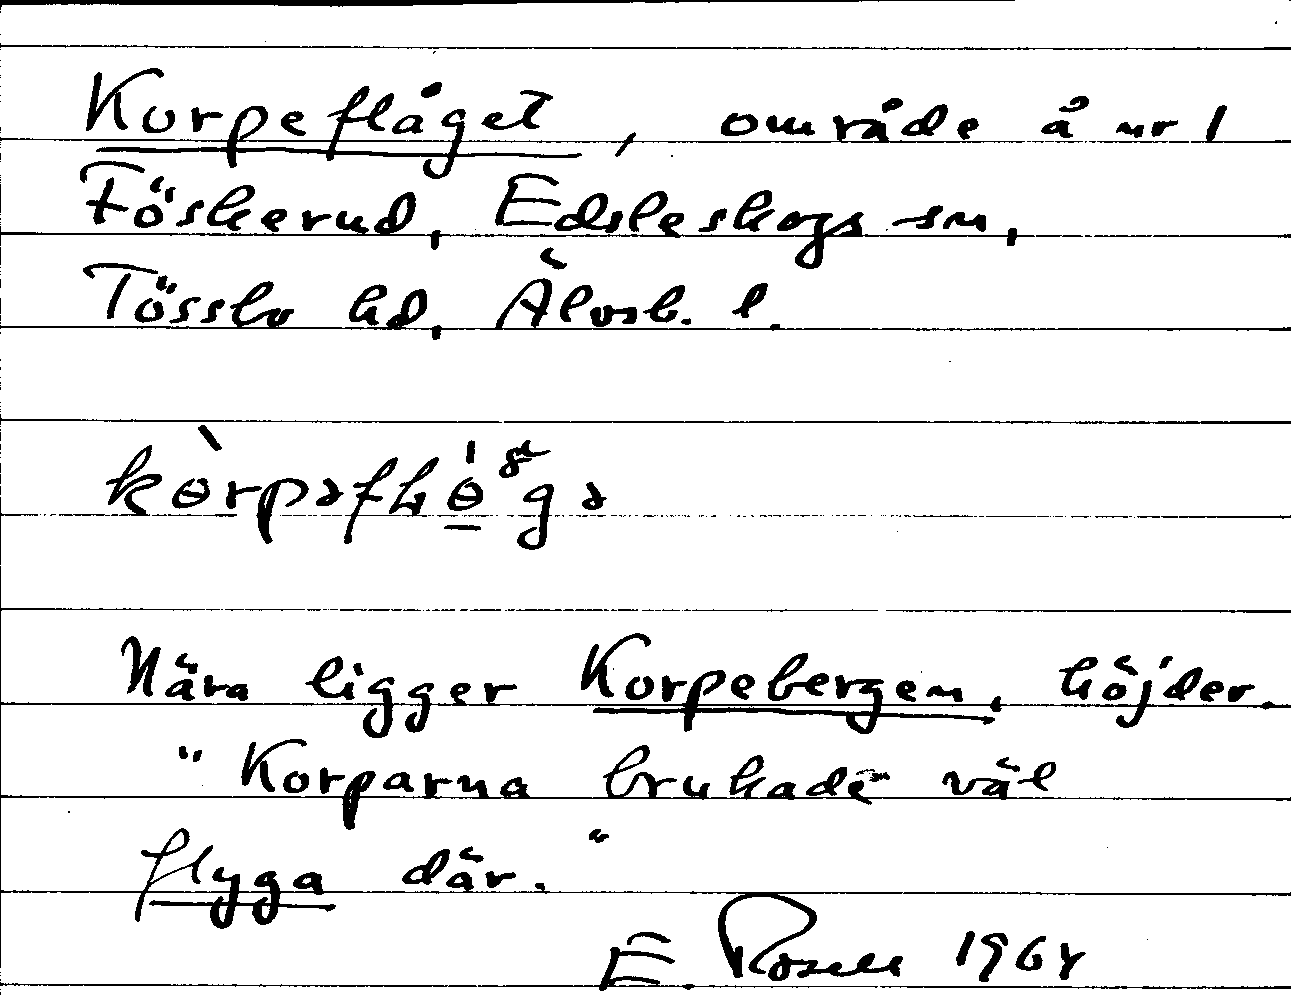 Korpeflåget, område å nr 1
Föskerud, Edsleskogs sn,
Tössbo hd, Älvsb. l.
kòrpəflɵ́gə
Nära ligger Korpebergen, höjder.
"Korparna brukade väl
flyga där."
E. Rosell 1964